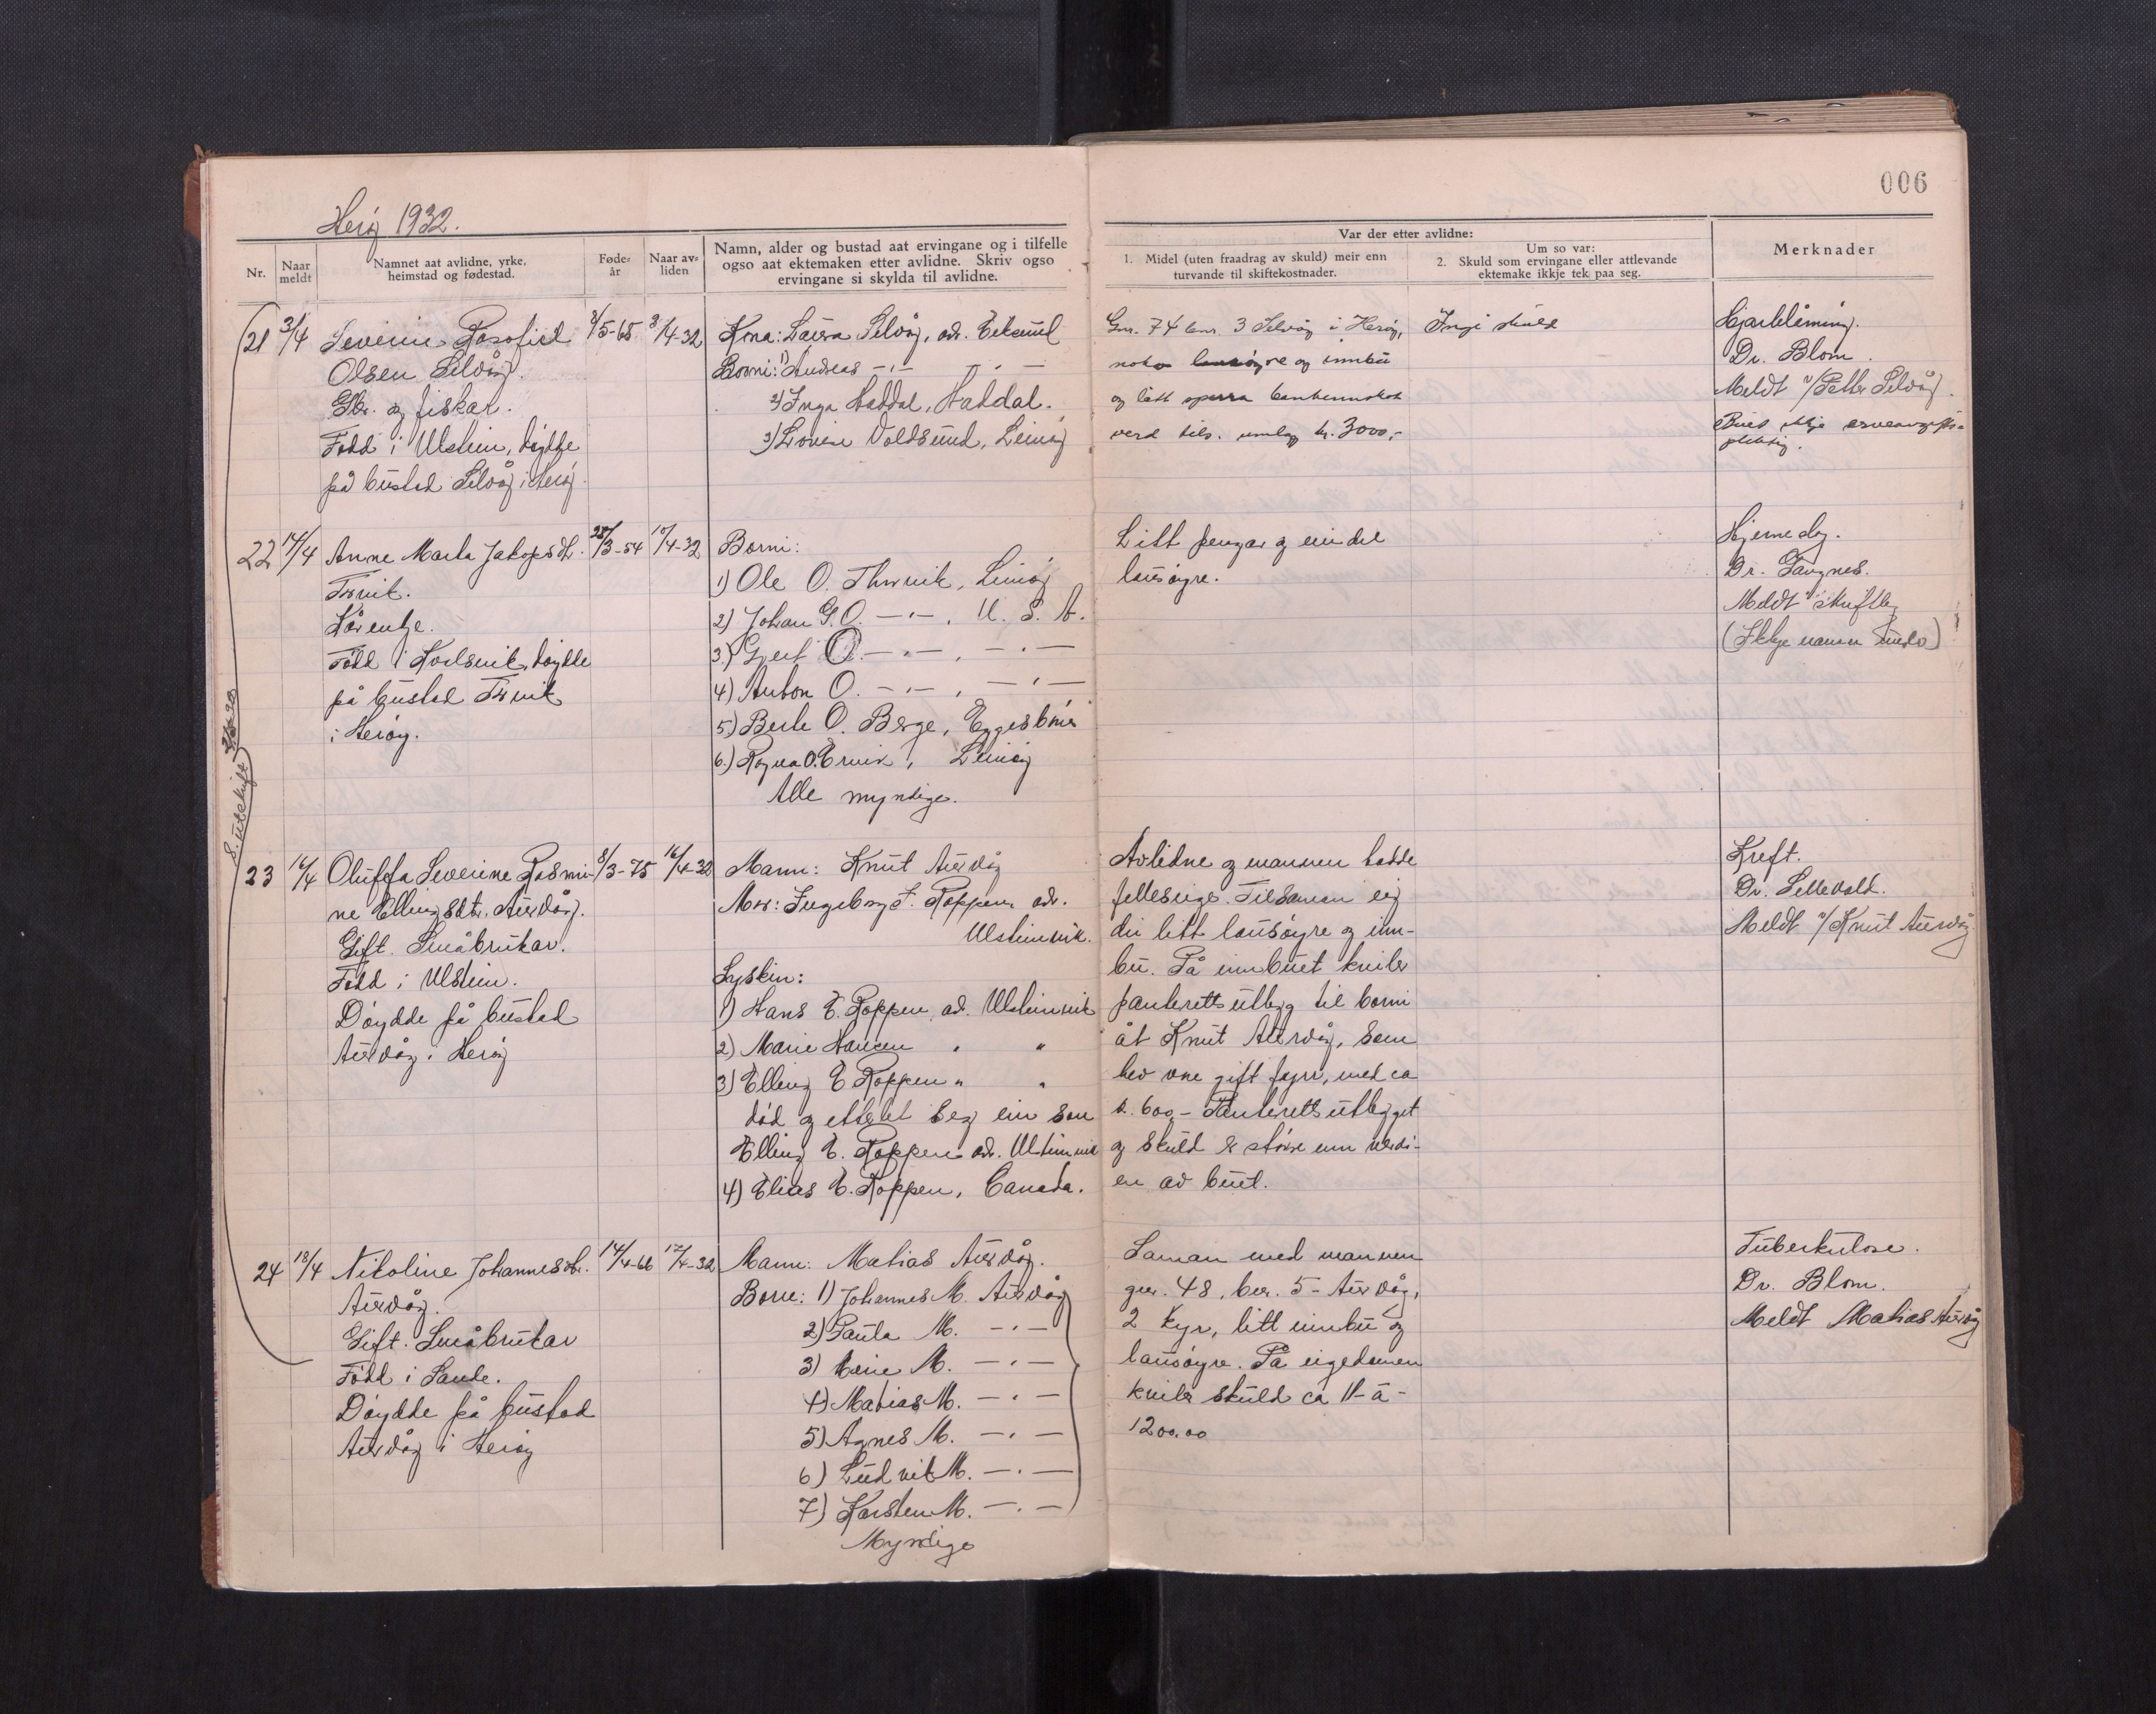 006
Herøy 1932.
Nr.
Naar meldt
Namnet aat avlidne, yrke,
heimstad og fødestad.
Føde-
år
Naar av-
liden
Namn, alder og bustad aat ervingane og i tilfelle
ogso aat ektemaken etter avlidne. Skriv ogso
ervingane si skylda til avlidne.
Var der etter avlidne:
1. Midel (uten fraadrag av skuld) meir enn
turvande til skiftekostnader.
Um so var:
2. Skuld som ervingane eller attlevande
ektemake ikkje tek paa seg.
Merknader
21 3/4 Severin
Olsen Selvåg.
Gbr. og fiskar.
Född i Ulstein, döydde
på bustad Selvåg i Heröy.
3/5-65 3/4-32
Kona: Laura Selvåg, adr. Eiksund
Borni: 1) Andreas -"- -"-
2) Inga Haddal, Haddal.
3) Lovise Voldsund, Leinöy
Gnr. 74 bnr. 3 Selvåg i Heröy,
noko lausöyre og innbu
og litt
verd tils. umlag kr. 3000,-
Ingi skuld
Hjartelåming.
Dr. Blom.
Meldt v/Petter Selvåg.
Buet ikkje arveavgifts-
pliktig.
22 14/4 Anne Marta Jakopsdtr.
Kårenkje.
Född i Kvalsvik, döydde
på bustad
i Heröy.
28/3-54 10/4-32
Borni:
1) Ole O. Leinöy
2) Johan G. O. -"-, U. S. A.
3) Gjert O. -"-, -"-
4) Anton O. -"-, -"-
5) Berte O. Berge, Eggesbönes
6.) Ragna O. Leinöy
Alle myndige.
Litt pengar og ein del
lausöyre.
Hjerneslag.
Dr. Taugnes.
Meldt skriftleg
(Ikkje namn under)
S. utskrift
23 16/4 Oluffa Severine Rasmi-
ne Ellingsdtr. Aurvåg.
Gift. Småbrukar.
Född i Ulstein.
Döydde på bustad
Aurvåg i Heröy
8/3-75 16/4-32
Mann: Knut Aurvåg
Mor: Ingeborg J. Roppen adr.
Ulsteinvik.
Syskin:
1) Hans E. Roppen, ad. Ulsteinvik
2) Marie Hansen " "
3) Elling E. Roppen " "
död og etterlet seg ein son
Elling E. Roppen adr. Ulsteinvik
4) Elias E. Roppen, Canada.
Avlidne og mannen hadde
felleseige. Tilsaman eig
dei litt lausöyre og inn-
bu. På innbuet kviler
panterettsutlegg til borni
åt Knut Aurvåg, som
hev vore gift fyrr, med ca
kr. 600,- Panterettsutlegget
og skuld er större enn verdi-
en av buet.
Kreft.
Dr. Sellevold.
Meldt v/Knut Aurvåg
24 18/4 Nikoline Johannesdtr.
Aurvåg.
Gift. Småbrukar
Född i Sande.
Döydde på bustad
Aurvåg i Heröy
14/4-66 17/4-32
Mann: Matias Aurvåg.
Born: 1) Johannes M. Aurvåg
2) Paula M. -"-
3) Marie M. -"-
4) Matias M. -"-
5) Agnes M. -"-
6) Ludvik M. -"-
7) Karsten M. -"-
Myndige
Saman med mannen
gnr. 48, bnr. 5 - Aurvåg,
2 kyr, litt innbu og
lausöyre. På eigedomen
kviler skuld ca 11-à-
1200.00
Tuberkulose.
Dr. Blom.
Meldt Matias Aurvåg